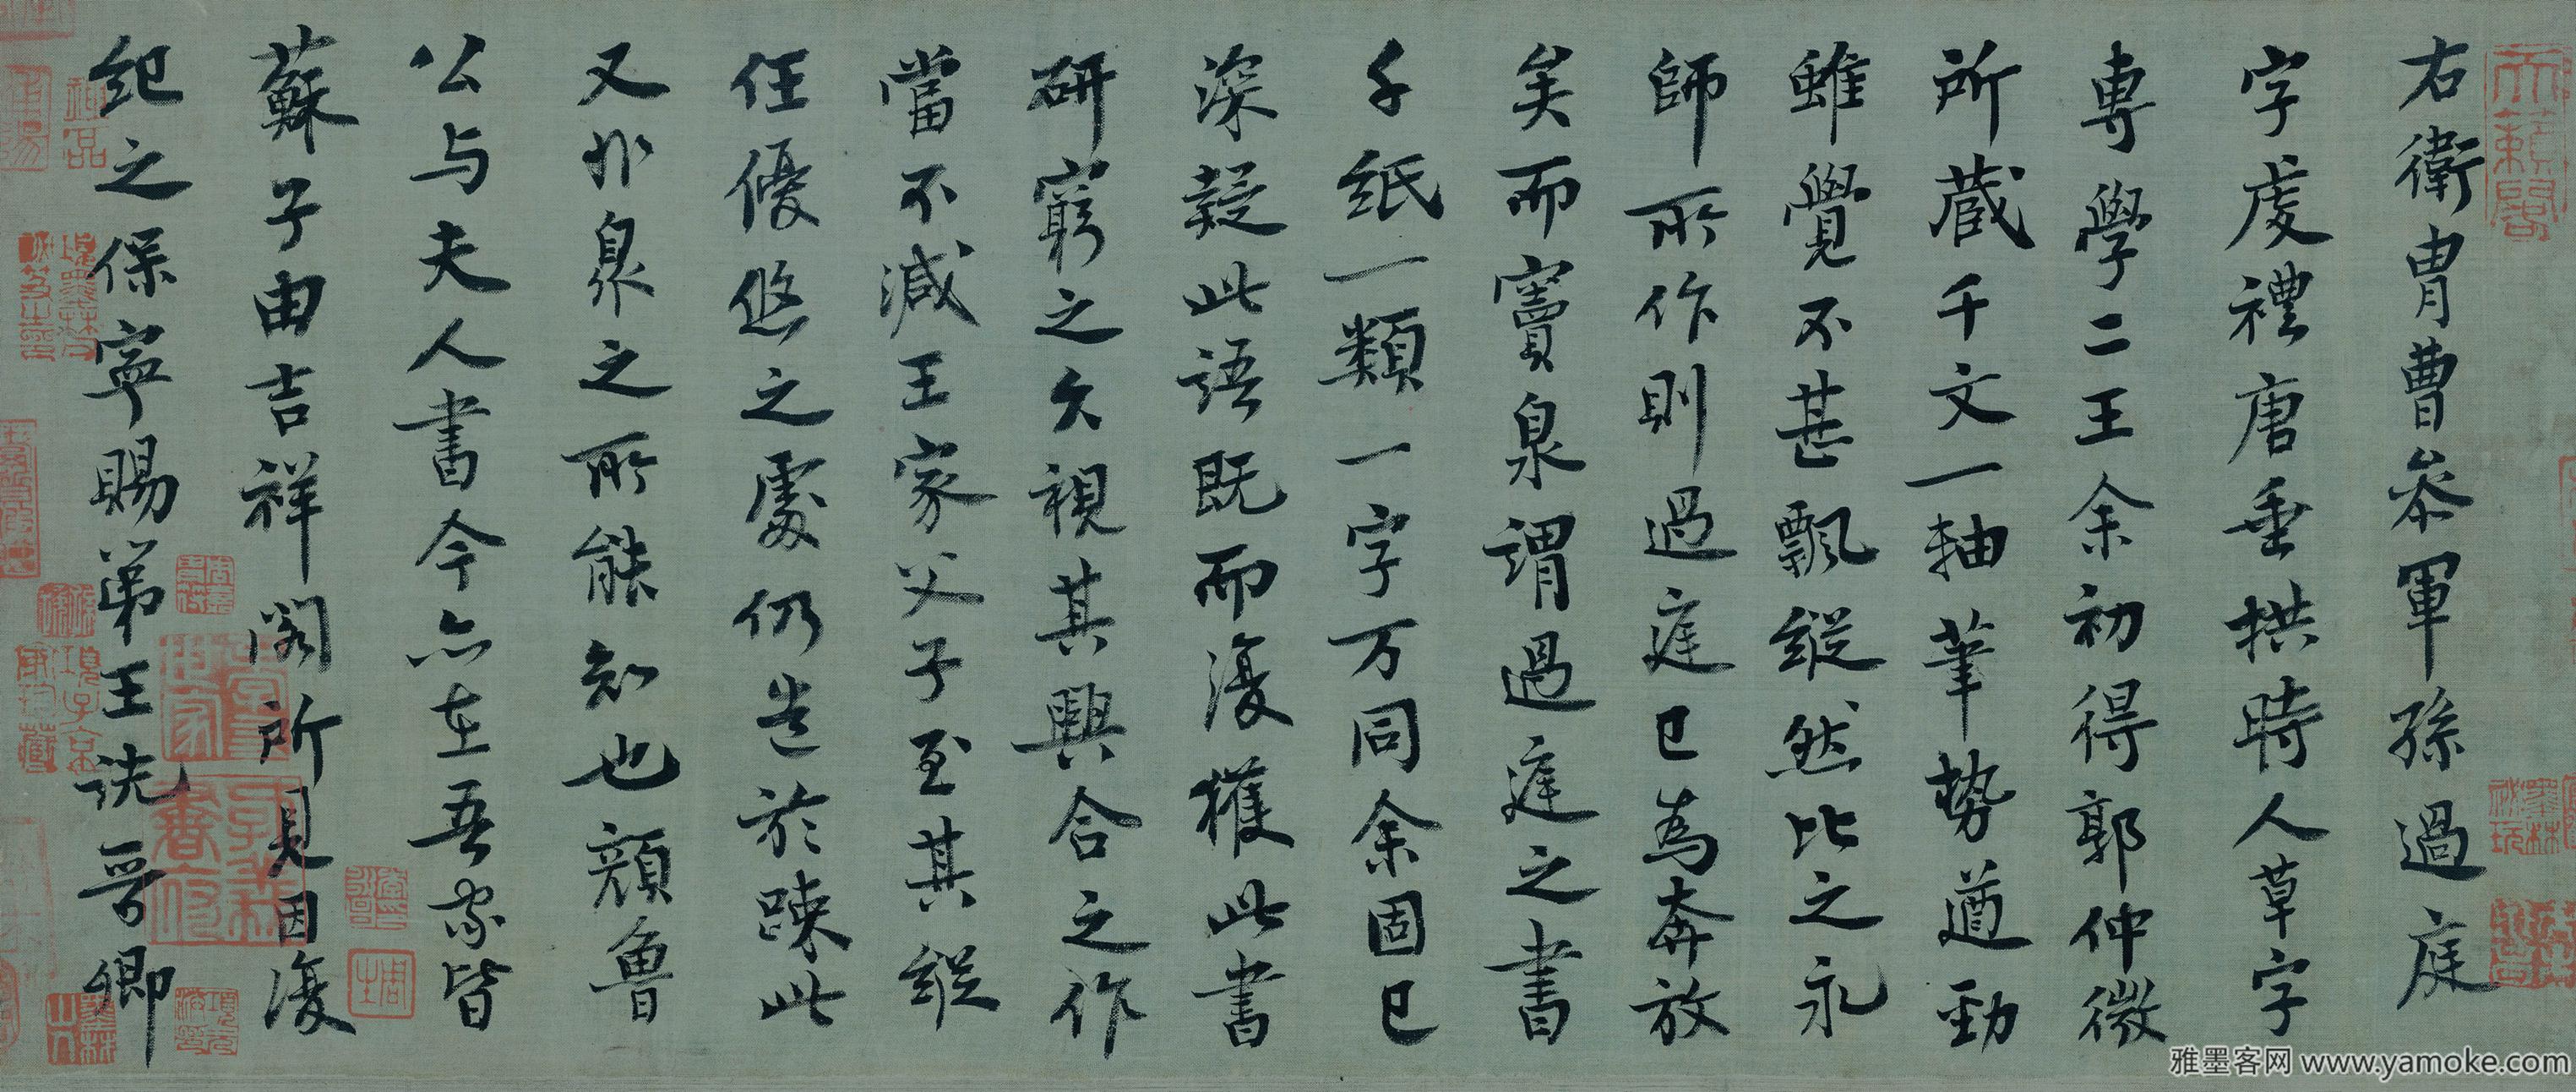 右衛胄曹參軍孫過庭
字虔禮唐垂拱時人草字
專學二王余初得郭仲微
所藏千文一軸筆勢遒勁
雖覺不甚飄縱然比之永
師所作則過庭已為奔放
矣而竇泉謂過庭之書
千紙一類一字万同余固已
深疑此語既而復獲此書
研窮之久視其興合之作
當不減王家父子至其縱
任優悠之處仍造於踈此
又非泉之所能知也顏魯
公与夫人書今亦在吾家皆
蘇子由吉祥閣所見因復
紀之保寧賜第王詵晉卿
雅墨客网 www.yamoke.com